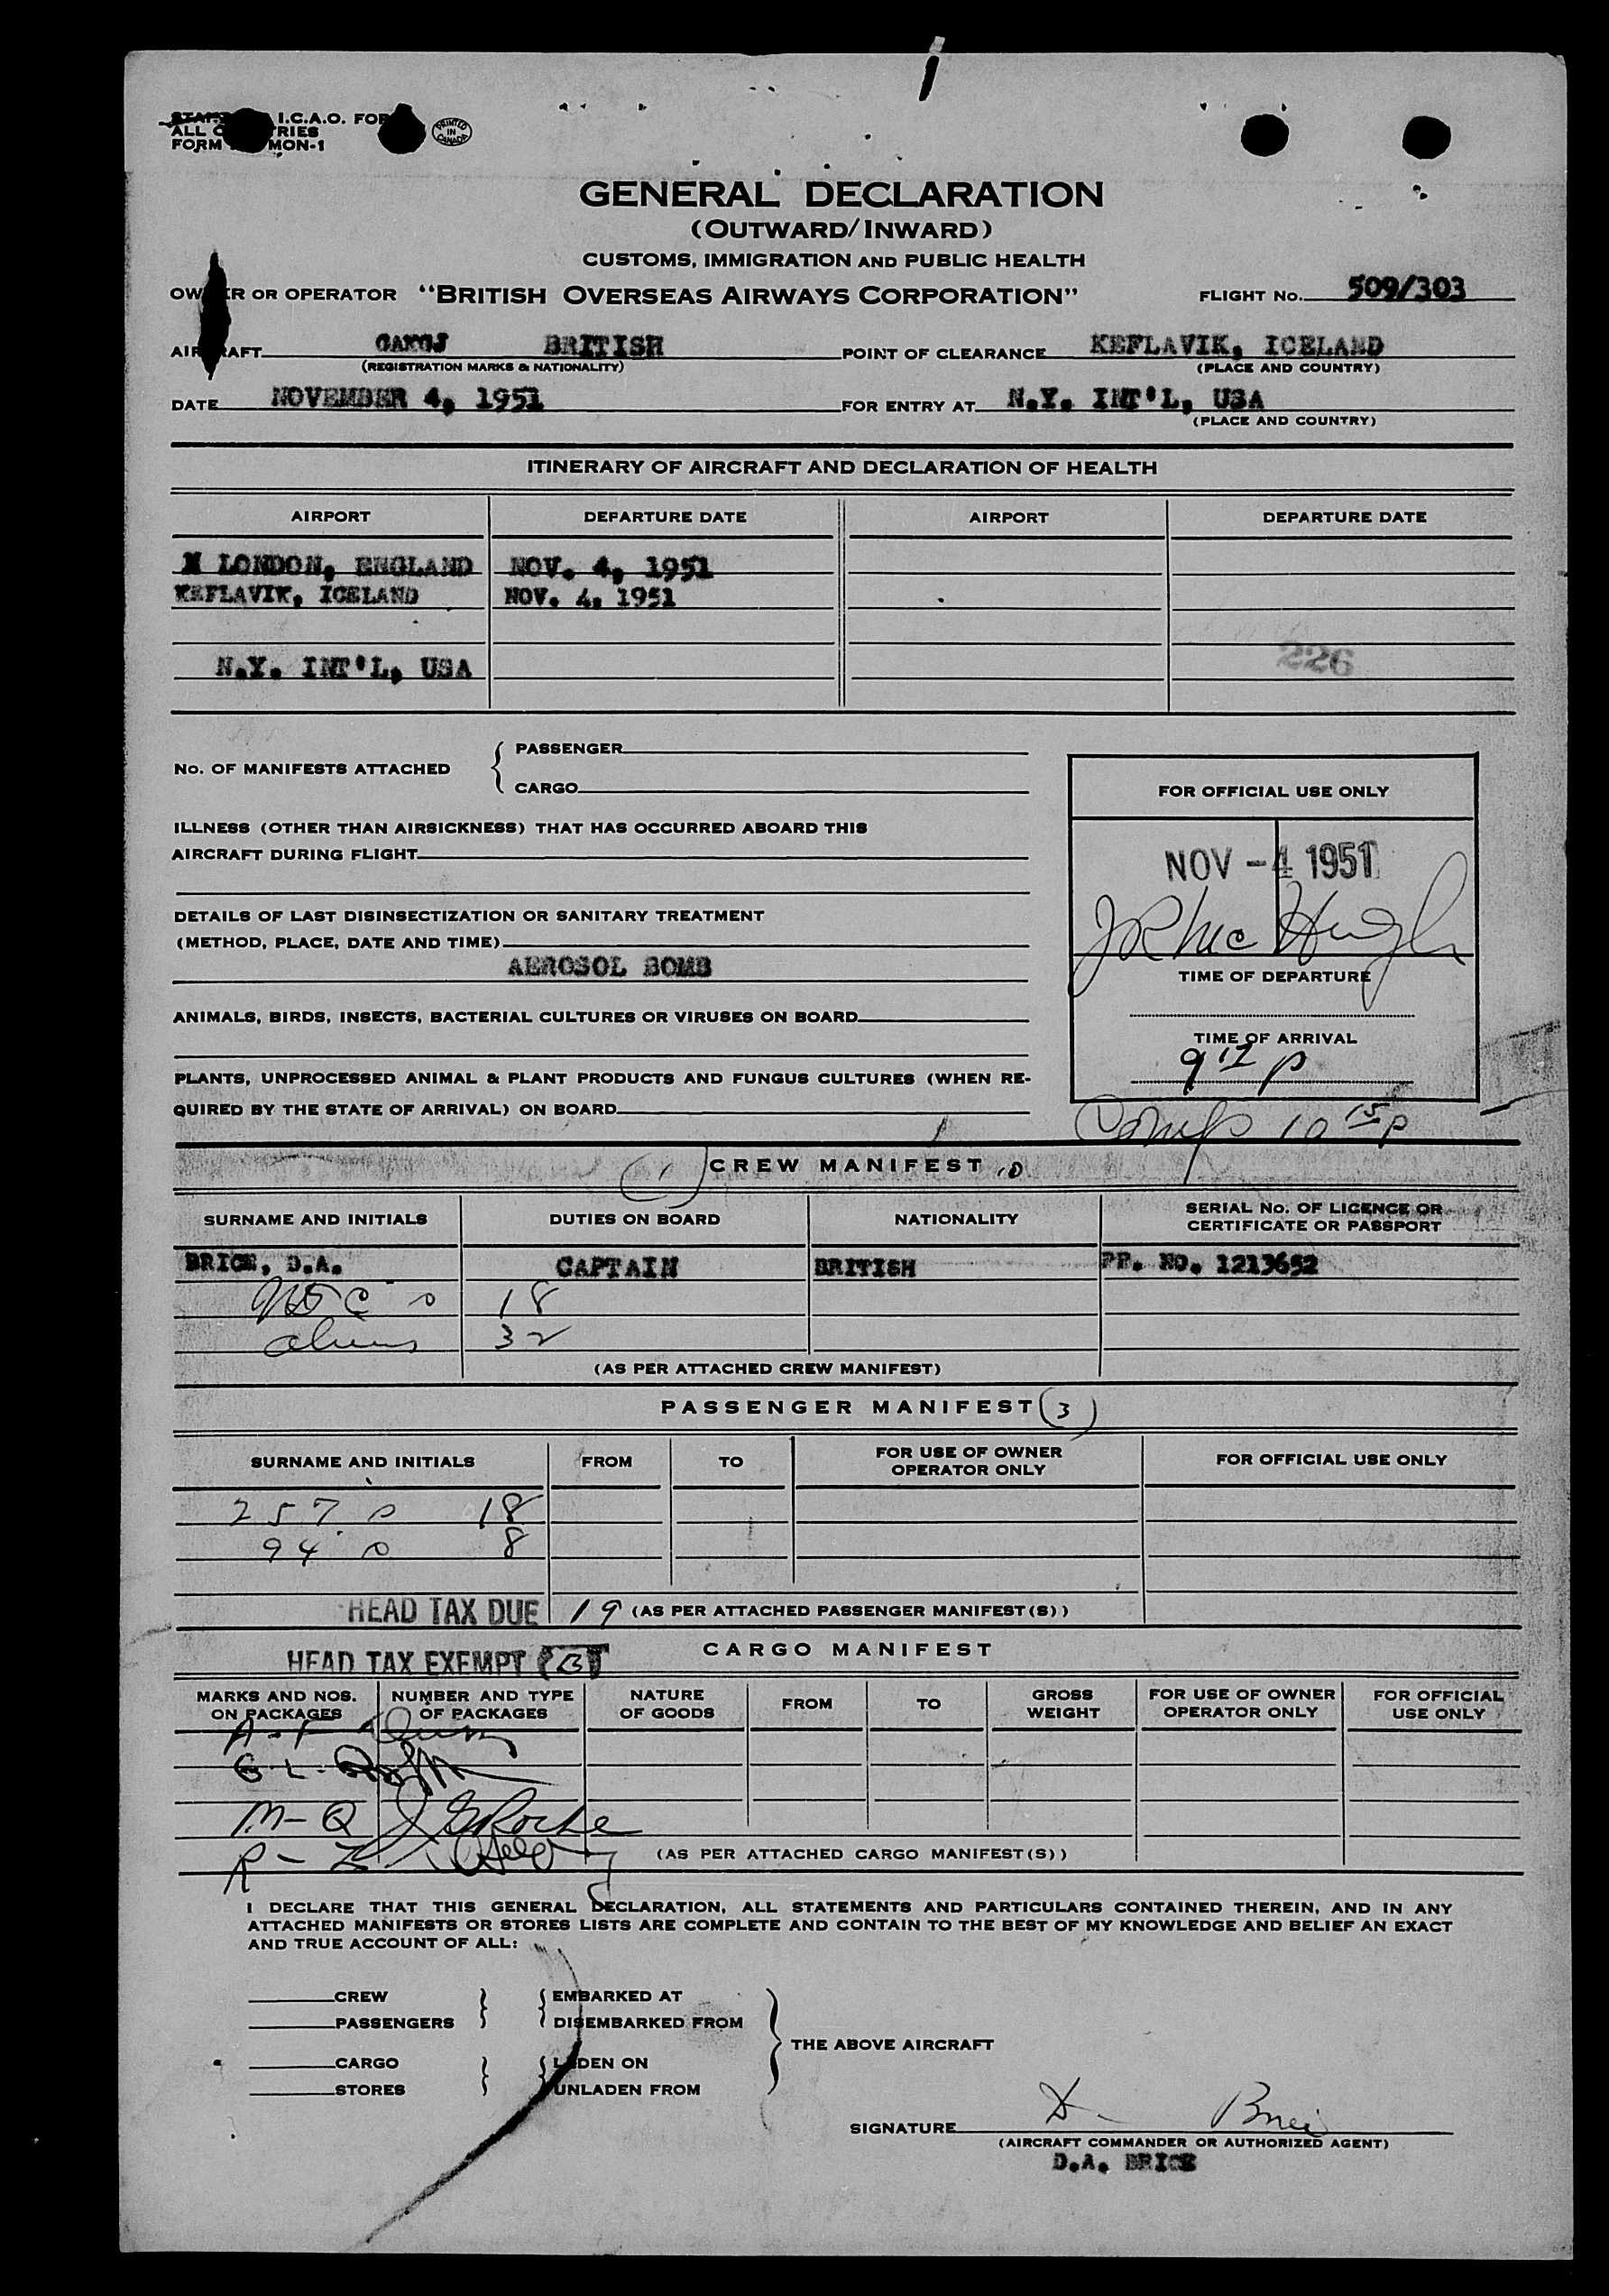 I.C.A.O. FOR
ALL
FORM MON-1
PRINTED IN CANADA
GENERAL DECLARATION
(OUTWARD/INWARD)
CUSTOMS, IMMIGRATION AND PUBLIC HEALTH
OWNER OR OPERATOR "BRITISH OVERSEAS AIRWAYS CORPORATION" FLIGHT NO. 509/303
AIRCRAFT BRITISH POINT OF CLEARANCE KEFLAVIK, ICELAND
(REGISTRATION MARKS & NATIONALITY) (PLACE AND COUNTRY)
DATE NOVEMBER 4, 1951 FOR ENTRY AT N.Y. INT'L, USA
(PLACE AND COUNTRY)
ITINERARY OF AIRCRAFT AND DECLARATION OF HEALTH
AIRPORT DEPARTURE DATE AIRPORT DEPARTURE DATE
LONDON, ENGLAND NOV. 4, 1951
KEFLAVIK, ICELAND NOV. 4, 1951
N.Y. INT'L, USA
226
No. OF MANIFESTS ATTACHED
PASSENGER
CARGO
ILLNESS (OTHER THAN AIRSICKNESS) THAT HAS OCCURRED ABOARD THIS
AIRCRAFT DURING FLIGHT
DETAILS OF LAST DISINSECTIZATION OR SANITARY TREATMENT
(METHOD, PLACE, DATE AND TIME)
AEROSOL BOMB
ANIMALS, BIRDS, INSECTS, BACTERIAL CULTURES OR VIRUSES ON BOARD
PLANTS, UNPROCESSED ANIMAL & PLANT PRODUCTS AND FUNGUS CULTURES (WHEN RE-
QUIRED BY THE STATE OF ARRIVAL) ON BOARD
FOR OFFICIAL USE ONLY
NOV -4 1951
JR McHugh
TIME OF DEPARTURE
TIME OF ARRIVAL
9 12 p
10 15 p
(1) CREW MANIFEST 10
SURNAME AND INITIALS DUTIES ON BOARD NATIONALITY SERIAL No. OF LICENCE OR
CERTIFICATE OR PASSPORT
BRICE, D.A. CAPTAIN BRITISH PP. NO. 1213652
18
aliens 32
(AS PER ATTACHED CREW MANIFEST)
PASSENGER MANIFEST (3)
SURNAME AND INITIALS FROM TO FOR USE OF OWNER
OPERATOR ONLY FOR OFFICIAL USE ONLY
257 18
94 8
HEAD TAX DUE 19 (AS PER ATTACHED PASSENGER MANIFEST(S))
CARGO MANIFEST
HEAD TAX EXEMPT
MARKS AND NOS.
ON PACKAGES NUMBER AND TYPE
OF PACKAGES NATURE
OF GOODS FROM TO GROSS
WEIGHT FOR USE OF OWNER
OPERATOR ONLY FOR OFFICIAL
USE ONLY
A-F
G-L
M-Q Roche
R-Z
(AS PER ATTACHED CARGO MANIFEST(S))
I DECLARE THAT THIS GENERAL DECLARATION, ALL STATEMENTS AND PARTICULARS CONTAINED THEREIN, AND IN ANY
ATTACHED MANIFESTS OR STORES LISTS ARE COMPLETE AND CONTAIN TO THE BEST OF MY KNOWLEDGE AND BELIEF AN EXACT
AND TRUE ACCOUNT OF ALL:
CREW EMBARKED AT
PASSENGERS DISEMBARKED FROM
THE ABOVE AIRCRAFT
CARGO LADEN ON
STORES UNLADEN FROM
SIGNATURE D. Brice
(AIRCRAFT COMMANDER OR AUTHORIZED AGENT)
D.A. BRICE